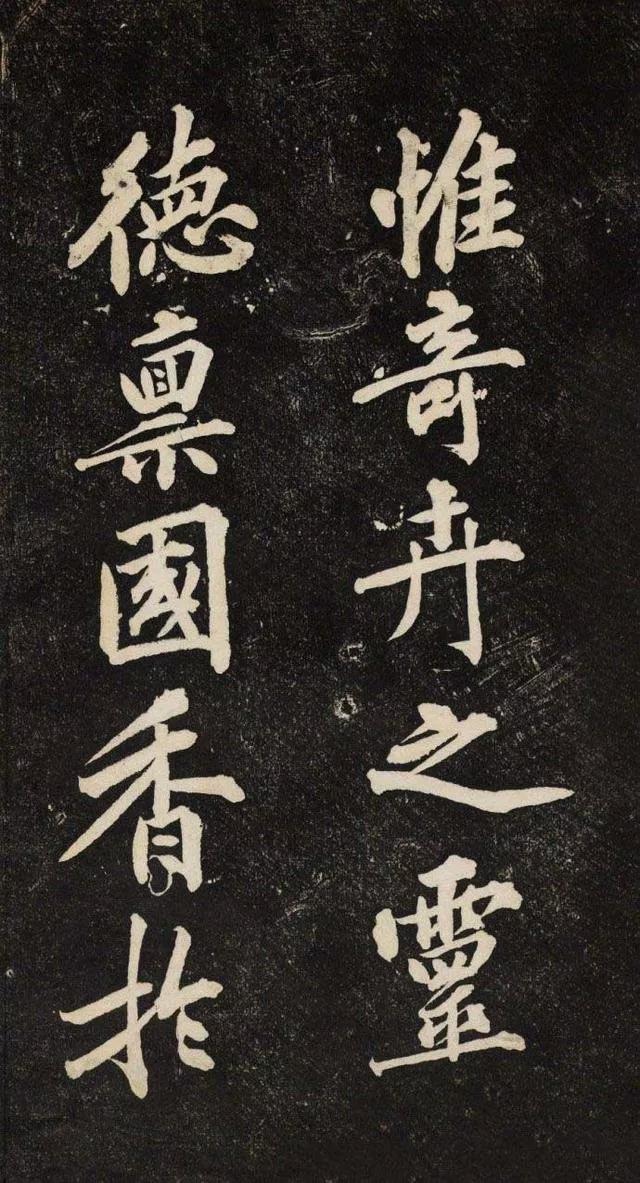 惟奇卉之靈
德禀國香於